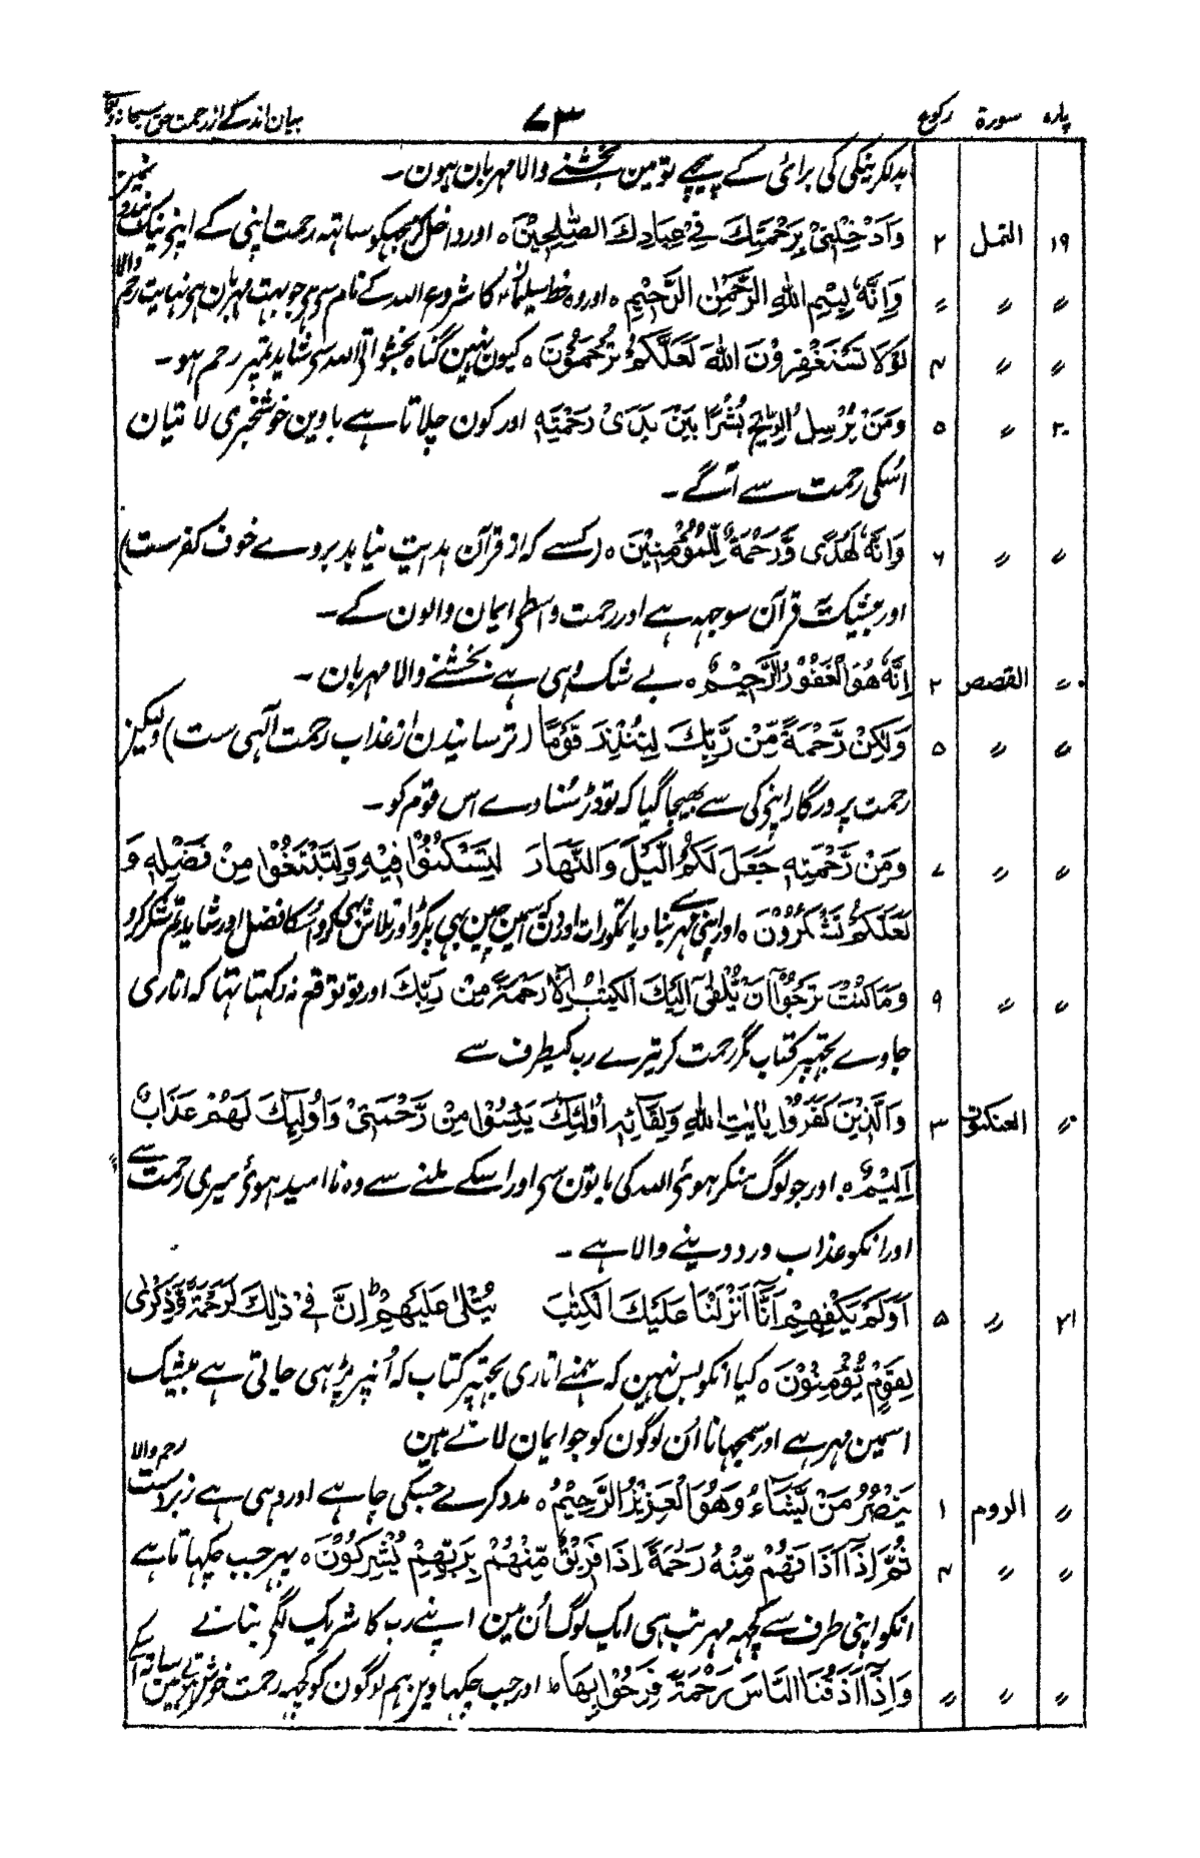 پارہ سورۃ رکوع ۷۳ بیان اندکے از رحمت حق سبحانہ وتعالے
بدلکر نیکی کی برائی کے پیچھے تو مین بخشنے والا مہربان ہون۔
۱۹ النمل ۲ وَاَدْخِلْنِیْ بِرَحْمَتِكَ فِیْ عِبَادِكَ الصّٰلِحِیْنَ ہ اور داخل کر مجہکو ساتہہ رحمت اپنی کے اپنے نیک بندو نمین
〃 〃 〃 وَاِنَّهٗ بِسْمِ اللهِ الرَّحْمٰنِ الرَّحِیْمِ ہ اور وہ خط سلیمانؑ کا شروع اللہ کے نام سی ہی جو بہت مہربان ہی نہایت رحم والا
〃 〃 ۴ لَوْلَا تَسْتَغْفِرُوْنَ اللهَ لَعَلَّكُمْ تُرْحَمُوْنَ ہ کیون نہین گناہ بخشواتی اللہ سی شاید تمپر رحم ہو۔
۲۰ 〃 ۵ وَمَنْ یُّرْسِلُ الرِّیٰحَ بُشْرًا بَیْنَ یَدَیْ رَحْمَتِهٖ اور کون چلاتا ہے باوین خوشخبری لاتیان
اسکی رحمت سے آگے۔
〃 〃 ۶ وَاِنَّهٗ لَهُدًی وَّرَحْمَةٌ لِّلْمُؤْمِنِیْنَ ہ (کسے کہ از قرآن ہدایت نیابد بروے خوف کفرست)
اور بیشک یہ قرآن سوجہہ ہے اور رحمت واسطی ایمان والون کے۔
〃 القصص ۲ اِنَّهٗ هُوَ الْغَفُوْرُ الرَّحِیْمُ ہ بے شک وہی ہے بخشنے والا مہربان۔
〃 〃 ۵ وَلٰكِنْ رَّحْمَةً مِّنْ رَّبِّكَ لِتُنْذِرَ قَوْمًا (ترسانیدن از عذاب رحمت آلہی ست) ولیکن
رحمت پروردگار اپنی کی سے بھیجا گیا کہ تو ڈر سُنادے اس قوم کو۔
〃 〃 ۷ وَمِنْ رَّحْمَتِهٖ جَعَلَ لَكُمُ الَّیْلَ وَالنَّهَارَ لِتَسْكُنُوْا فِیْهِ وَلِتَبْتَغُوْا مِنْ فَضْلِهٖ وَ
لَعَلَّكُمْ تَشْكُرُوْنَ ہ اور اپنی مہر سے بنا دیا تمکو رات اور دن کہ اسمین چین بھی پکڑو اور تلاش بھی کرو اُسکا فضل اور شاید تم شکر کرو
〃 〃 ۹ وَمَا كُنْتَ تَرْجُوْٓا اَنْ یُّلْقٰٓی اِلَیْكَ الْكِتٰبُ اِلَّا رَحْمَةً مِّنْ رَّبِّكَ اور تو توقع نہ رکہتا تہا کہ اتاری
جاوے تجہپر کتاب مگر رحمت کر تیرے رب کیطرف سے
〃 العنکبوت ۳ وَالَّذِیْنَ كَفَرُوْا بِاٰیٰتِ اللهِ وَلِقَآئِهٖٓ اُولٰٓئِكَ یَئِسُوْا مِنْ رَّحْمَتِیْ وَاُولٰٓئِكَ لَهُمْ عَذَابٌ
اَلِیْمٌ ہ اور جو لوگ منکر ہوئی اللہ کی باتون سی اور اسکے ملنے سے وہ ناامید ہوئے میری رحمت سے
اور انکو عذاب درد دینے والا ہے۔
۲۱ 〃 ۵ اَوَلَمْ یَكْفِهِمْ اَنَّآ اَنْزَلْنَا عَلَیْكَ الْكِتٰبَ یُتْلٰی عَلَیْهِمْ اِنَّ فِیْ ذٰلِكَ لَرَحْمَةً وَّذِكْرٰی
لِقَوْمٍ یُّؤْمِنُوْنَ ہ کیا انکو بس نہین کہ ہمنے اتاری تجہپر کتاب کہ اُنپر پڑہی جاتی ہے بیشک
اسمین مہر ہے اور سمجہانا اُن لوگون کو جو ایمان لاتے ہین
〃 الروم ۱ یَنْصُرُ مَنْ یَّشَآءُ وَهُوَ الْعَزِیْزُ الرَّحِیْمُ ہ مدد کرے جسکی چاہے اور وہی ہے زبردست رحم والا
〃 〃 ۴ ثُمَّ اِذَآ اَذَاقَهُمْ مِّنْهُ رَحْمَةً اِذَا فَرِیْقٌ مِّنْهُمْ بِرَبِّهِمْ یُشْرِكُوْنَ ہ پہر جب چکہاتا ہے
انکو اپنی طرف سے کچہہ مہر تب ہی ایک لوگ اُن مین اپنے رب کا شریک لگی بتانے
〃 〃 〃 وَاِذَآ اَذَقْنَا النَّاسَ رَحْمَةً فَرِحُوْا بِهَا ط اور جب چکہاوین ہم لوگون کو کچہہ رحمت خوش ہوتے ہین ساتہ اسکے